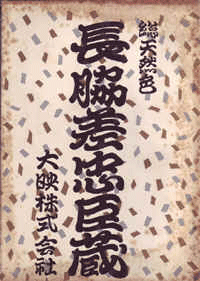 総天然色
長脇差忠臣蔵
大映株式会社